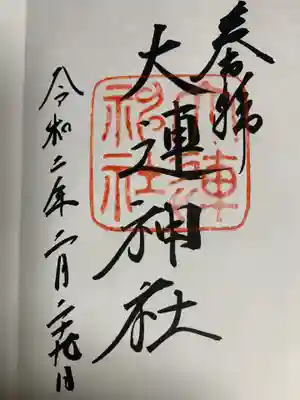 奉拝
大連神社
大連
神社
令和二年二月二十九日